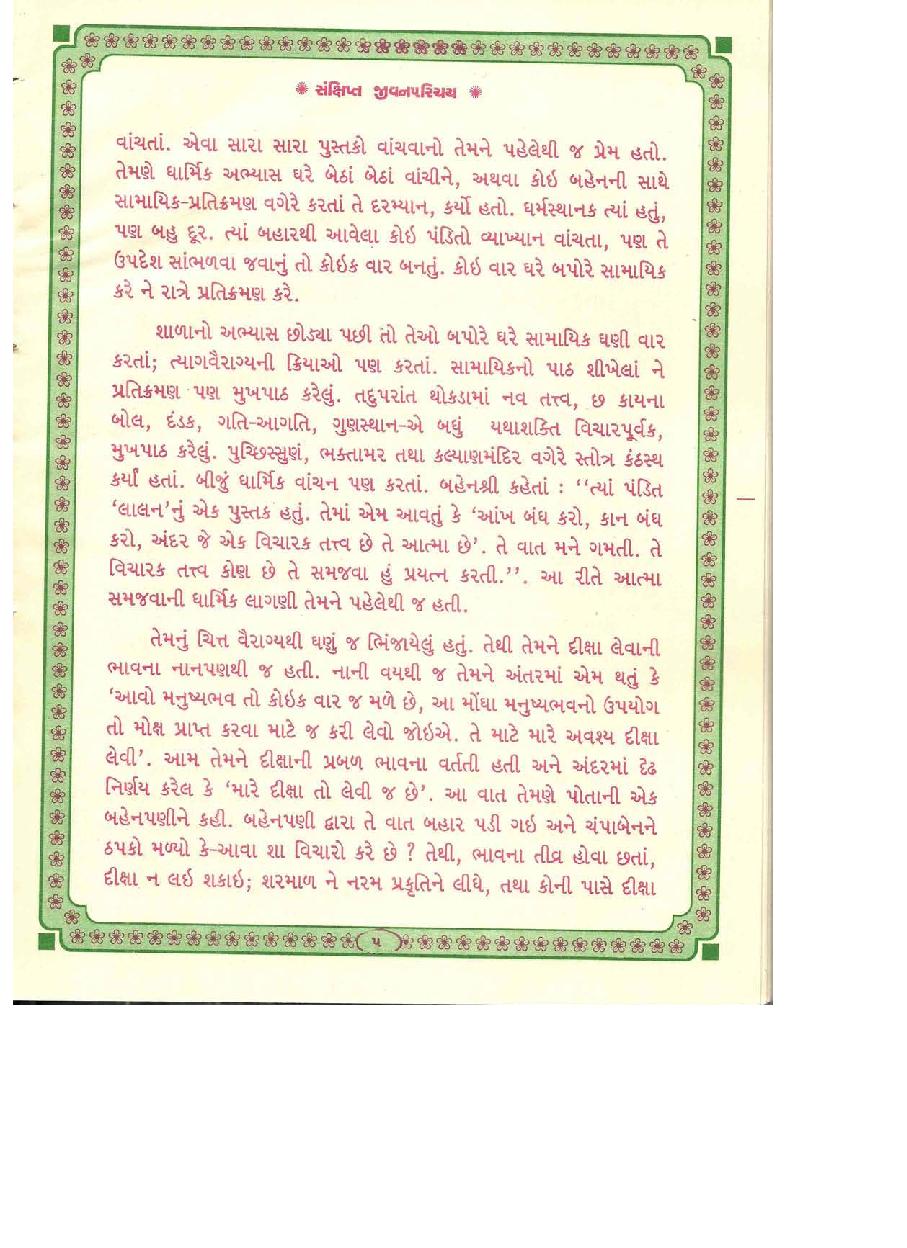 સંક્ષિપ્ત જીવનપરિચય
વાંચતાં. એવા સારા સારા પુસ્તકો વાંચવાનો તેમને પહેલેથી જ પ્રેમ હતો.
તેમણે ધાર્મિક અભ્યાસ ઘરે બેઠાં બેઠાં વાંચીને, અથવા કોઇ બહેનની સાથે
સામાયિક-પ્રતિક્રમણ વગેરે કરતાં તે દરમ્યાન, કર્યો હતો. ધર્મસ્થાનક ત્યાં હતું,
પણ બહુ દૂર. ત્યાં બહારથી આવેલા કોઇ પંડિતો વ્યાખ્યાન વાંચતા, પણ તે
ઉપદેશ સાંભળવા જવાનું તો કોઇક વાર બનતું. કોઇ વાર ઘરે બપોરે સામાયિક
કરે ને રાત્રે પ્રતિક્રમણ કરે.
શાળાનો અભ્યાસ છોડ્યા પછી તો તેઓ બપોરે ઘરે સામાયિક ઘણી વાર
કરતાં; ત્યાગવૈરાગ્યની ક્રિયાઓ પણ કરતાં. સામાયિકનો પાઠ શીખેલાં ને
પ્રતિક્રમણ પણ મુખપાઠ કરેલું. તદુપરાંત થોકડામાં નવ તત્ત્વ, છ કાયના
બોલ, દંડક, ગતિ-આગતિ, ગુણસ્થાન-એ બધું યથાશક્તિ વિચારપૂર્વક,
મુખપાઠ કરેલું. પુચ્છિસ્સુણં, ભક્તામર તથા કલ્યાણમંદિર વગેરે સ્તોત્ર કંઠસ્થ
કર્યાં હતાં. બીજું ધાર્મિક વાંચન પણ કરતાં. બહેનશ્રી કહેતાં : ‘‘ત્યાં પંડિત
‘લાલન’નું એક પુસ્તક હતું. તેમાં એમ આવતું કે ‘આંખ બંધ કરો, કાન બંધ
કરો, અંદર જે એક વિચારક તત્ત્વ છે તે આત્મા છે’. તે વાત મને ગમતી. તે
વિચારક તત્ત્વ કોણ છે તે સમજવા હું પ્રયત્ન કરતી.’’. આ રીતે આત્મા
સમજવાની ધાર્મિક લાગણી તેમને પહેલેથી જ હતી.
તેમનું ચિત્ત વૈરાગ્યથી ઘણું જ ભિંજાયેલું હતું. તેથી તેમને દીક્ષા લેવાની
ભાવના નાનપણથી જ હતી. નાની વયથી જ તેમને અંતરમાં એમ થતું કે
‘આવો મનુષ્યભવ તો કોઇક વાર જ મળે છે, આ મોંઘા મનુષ્યભવનો ઉપયોગ
તો મોક્ષ પ્રાપ્ત કરવા માટે જ કરી લેવો જોઇએ. તે માટે મારે અવશ્ય દીક્ષા
લેવી’. આમ તેમને દીક્ષાની પ્રબળ ભાવના વર્તતી હતી અને અંદરમાં દ્રઢ
નિર્ણય કરેલ કે ‘મારે દીક્ષા તો લેવી જ છે’. આ વાત તેમણે પોતાની એક
બહેનપણીને કહી. બહેનપણી દ્વારા તે વાત બહાર પડી ગઇ અને ચંપાબેનને
ઠપકો મળ્યો કે-આવા શા વિચારો કરે છે ? તેથી, ભાવના તીવ્ર હોવા છતાં,
દીક્ષા ન લઇ શકાઇ; શરમાળ ને નરમ પ્રકૃતિને લીધે, તથા કોની પાસે દીક્ષા
૫